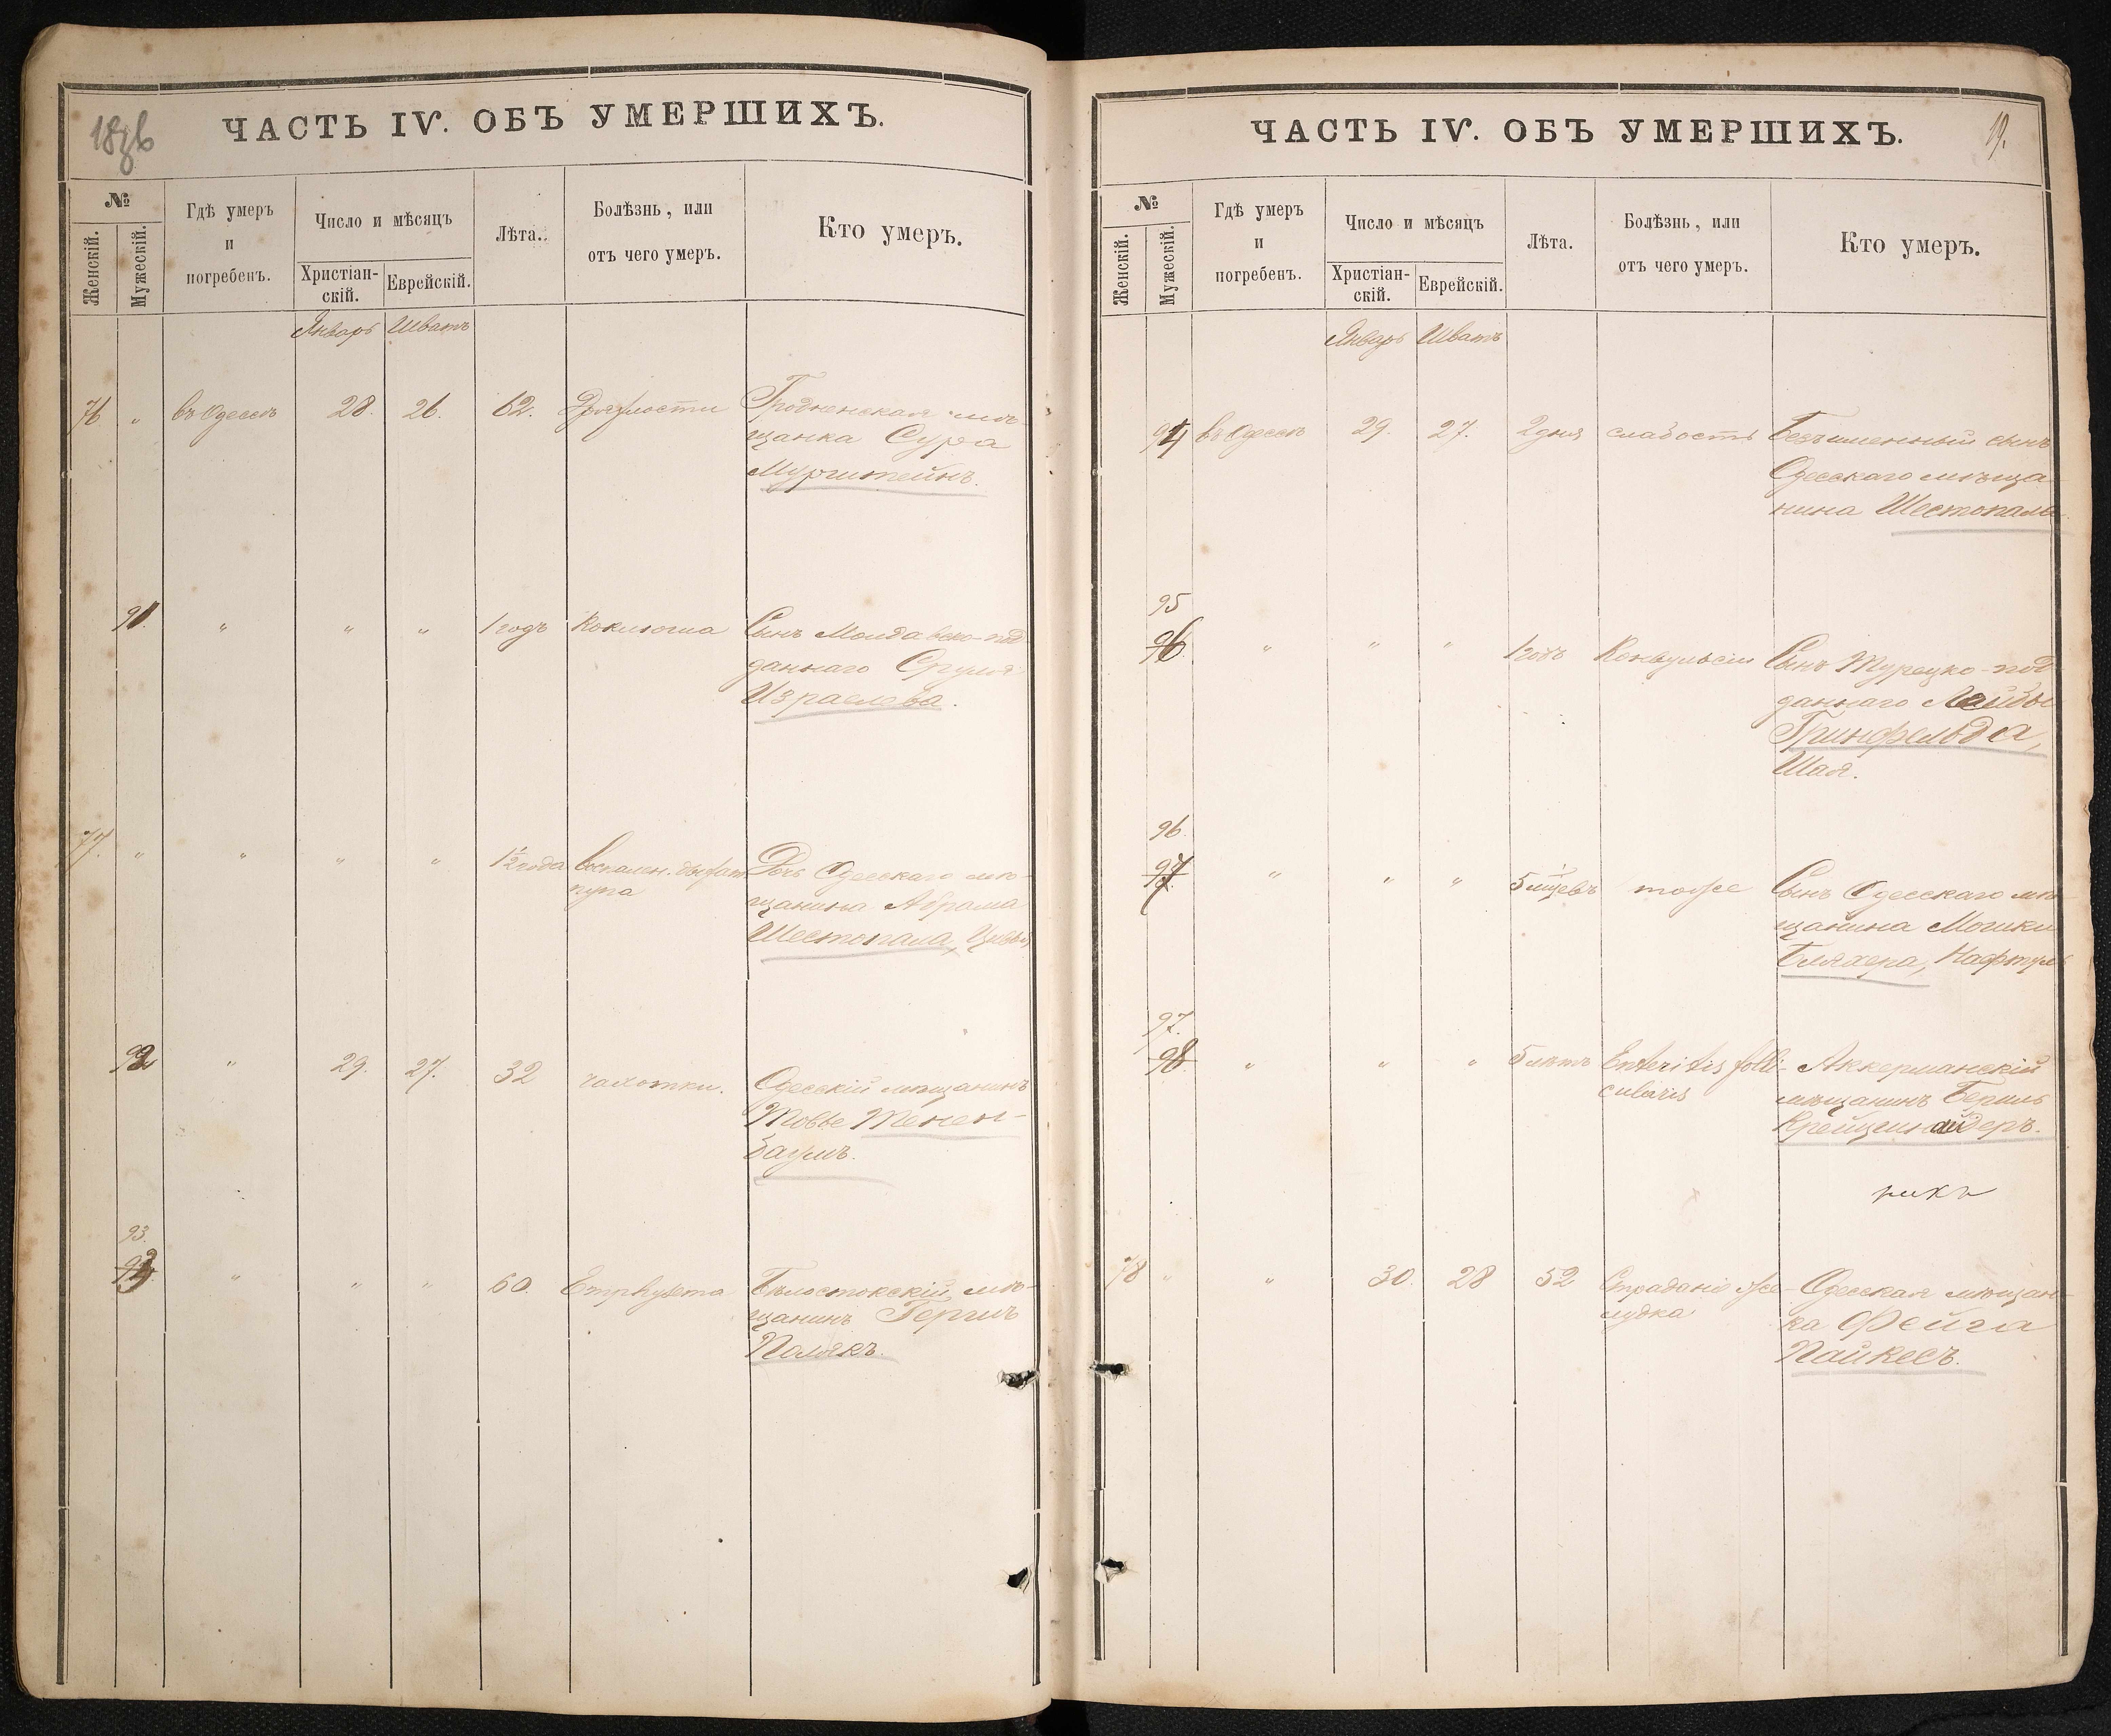 18 зв
ЧАСТЬ IV. ОБЪ УМЕРШИХЪ.
№
Женскій.
Мужескій.
Гдѣ умеръ
и
погребенъ.
Число и мѣсяцъ
Христіан-
скій.
Еврейскій.
Лѣта.
Болѣзнь, или
отъ чего умеръ.
Кто умеръ.
Январь Шватъ
76 " въ Одессѣ 28. 26. 62. Дряхлости Гродненская мѣ-
щанка Сура
Мургитейнъ.
91. " " " 1 годъ Коклюша Сынъ Молдавско-под
даннаго Сруля
Израелева.
77. " " " " 1½ года воспален. дыхат Дочь Одесскаго мѣ-
щанина Абрама
Шестопала, Цивья
92 " 29. 27. 32 чахотки. Одесскій мѣщанинъ
Товье Тенен-
баумъ.
93.
" " " 60. Emphysema Бѣлостокскій мѣ-
щанинъ Гершъ
Полякъ.
19.
ЧАСТЬ IV. ОБЪ УМЕРШИХЪ.
№
Женскій.
Мужескій.
Гдѣ умеръ
и
погребенъ.
Число и мѣсяцъ
Христіан-
скій.
Еврейскій.
Лѣта.
Болѣзнь, или
отъ чего умеръ.
Кто умеръ.
Январь Шватъ
94 въ Одессѣ 29. 27. 2 дня слабость Безъименный сынъ
Одесскаго мѣща-
нина Шестопаль
95
96 " " " 1 годъ Конвульсіи Сынъ Турецко-под
даннаго Лейбы
Гринфельда,
Шая.
96
97. " " " 5 мѣцевъ тоже Сынъ Одесскаго мѣ-
щанина Мошки
Бляхера, Нафтуль
97.
98 " " " 5 лѣтъ Enteritis folli- Аккерманскій
cularis мѣщанинъ Берилъ
Крейцшнайдеръ.
рикъ
78 " " 30. 28 52 Страданіе же- Одесская мѣщан-
лудка ка Фейга
Пайкесъ.